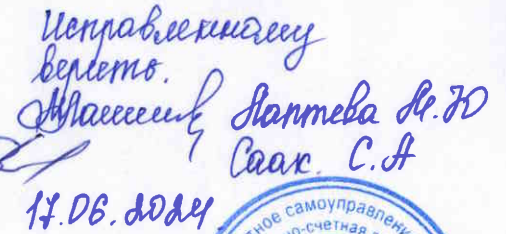 Исправленному
верить.
Лаптева М.Ю
Саак. С.А
17.06.2024
ное самоуправлени
но-счетная